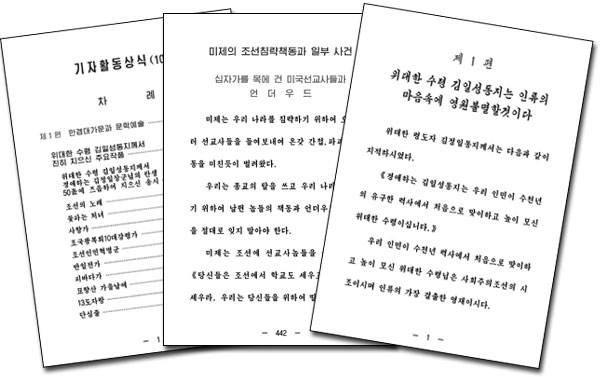 기자활동상식(10
차 례
제1편 만경대가문과 문학예술
위대한 수령 김일성동지께서
친히 지으신 주요작품
위대한 수령 김일성동지께서
경애하는 김정일장군님의 탄생
50돐에 즈음하여 지으신 송시
조선의 노래
꽃파는 처녀
사향가
조국광복회10대강령가
조선인민혁명군
반일전가
피바다가
묘향산 가을날에
13도자랑
단심줄
– 1
미제의 조선침략책동과 일부 사건
십자가를 목에 건 미국선교사들과
언더우드
미제는 우리 나라를 침략하기 위하여 오
터 선교사들을 들여보내여 온갖 간첩,파괴
동을 미친듯이 벌려왔다.
우리는 종교의 탈을 쓰고 우리 나라
기 위하여 날뛴 놈들의 책동과 언더우드
을 절대로 잊지 말아야 한다.
미제는 조선에 선교사놈들을
《당신들은 조선에서 학교도 세우고
세우라. 우리는 당신들을 위하여
– 442 –
제 1 편
위대한 수령 김일성동지는 인류의
마음속에 영원불멸할것이다
위대한 령도자 김정일동지께서는 다음과 같이
지적하시였다.
《경애하는 김일성동지는 우리 인민이 수천년
의 유구한 력사에서 처음으로 맞이하고 높이 모신
위대한 수령이십니다.》
우리 인민이 수천년 력사에서 처음으로 맞이하
고 높이 모신 위대한 수령님은 사회주의조선의 시
조이시며 인류의 가장 걸출한 영재이시다.
– 1 –